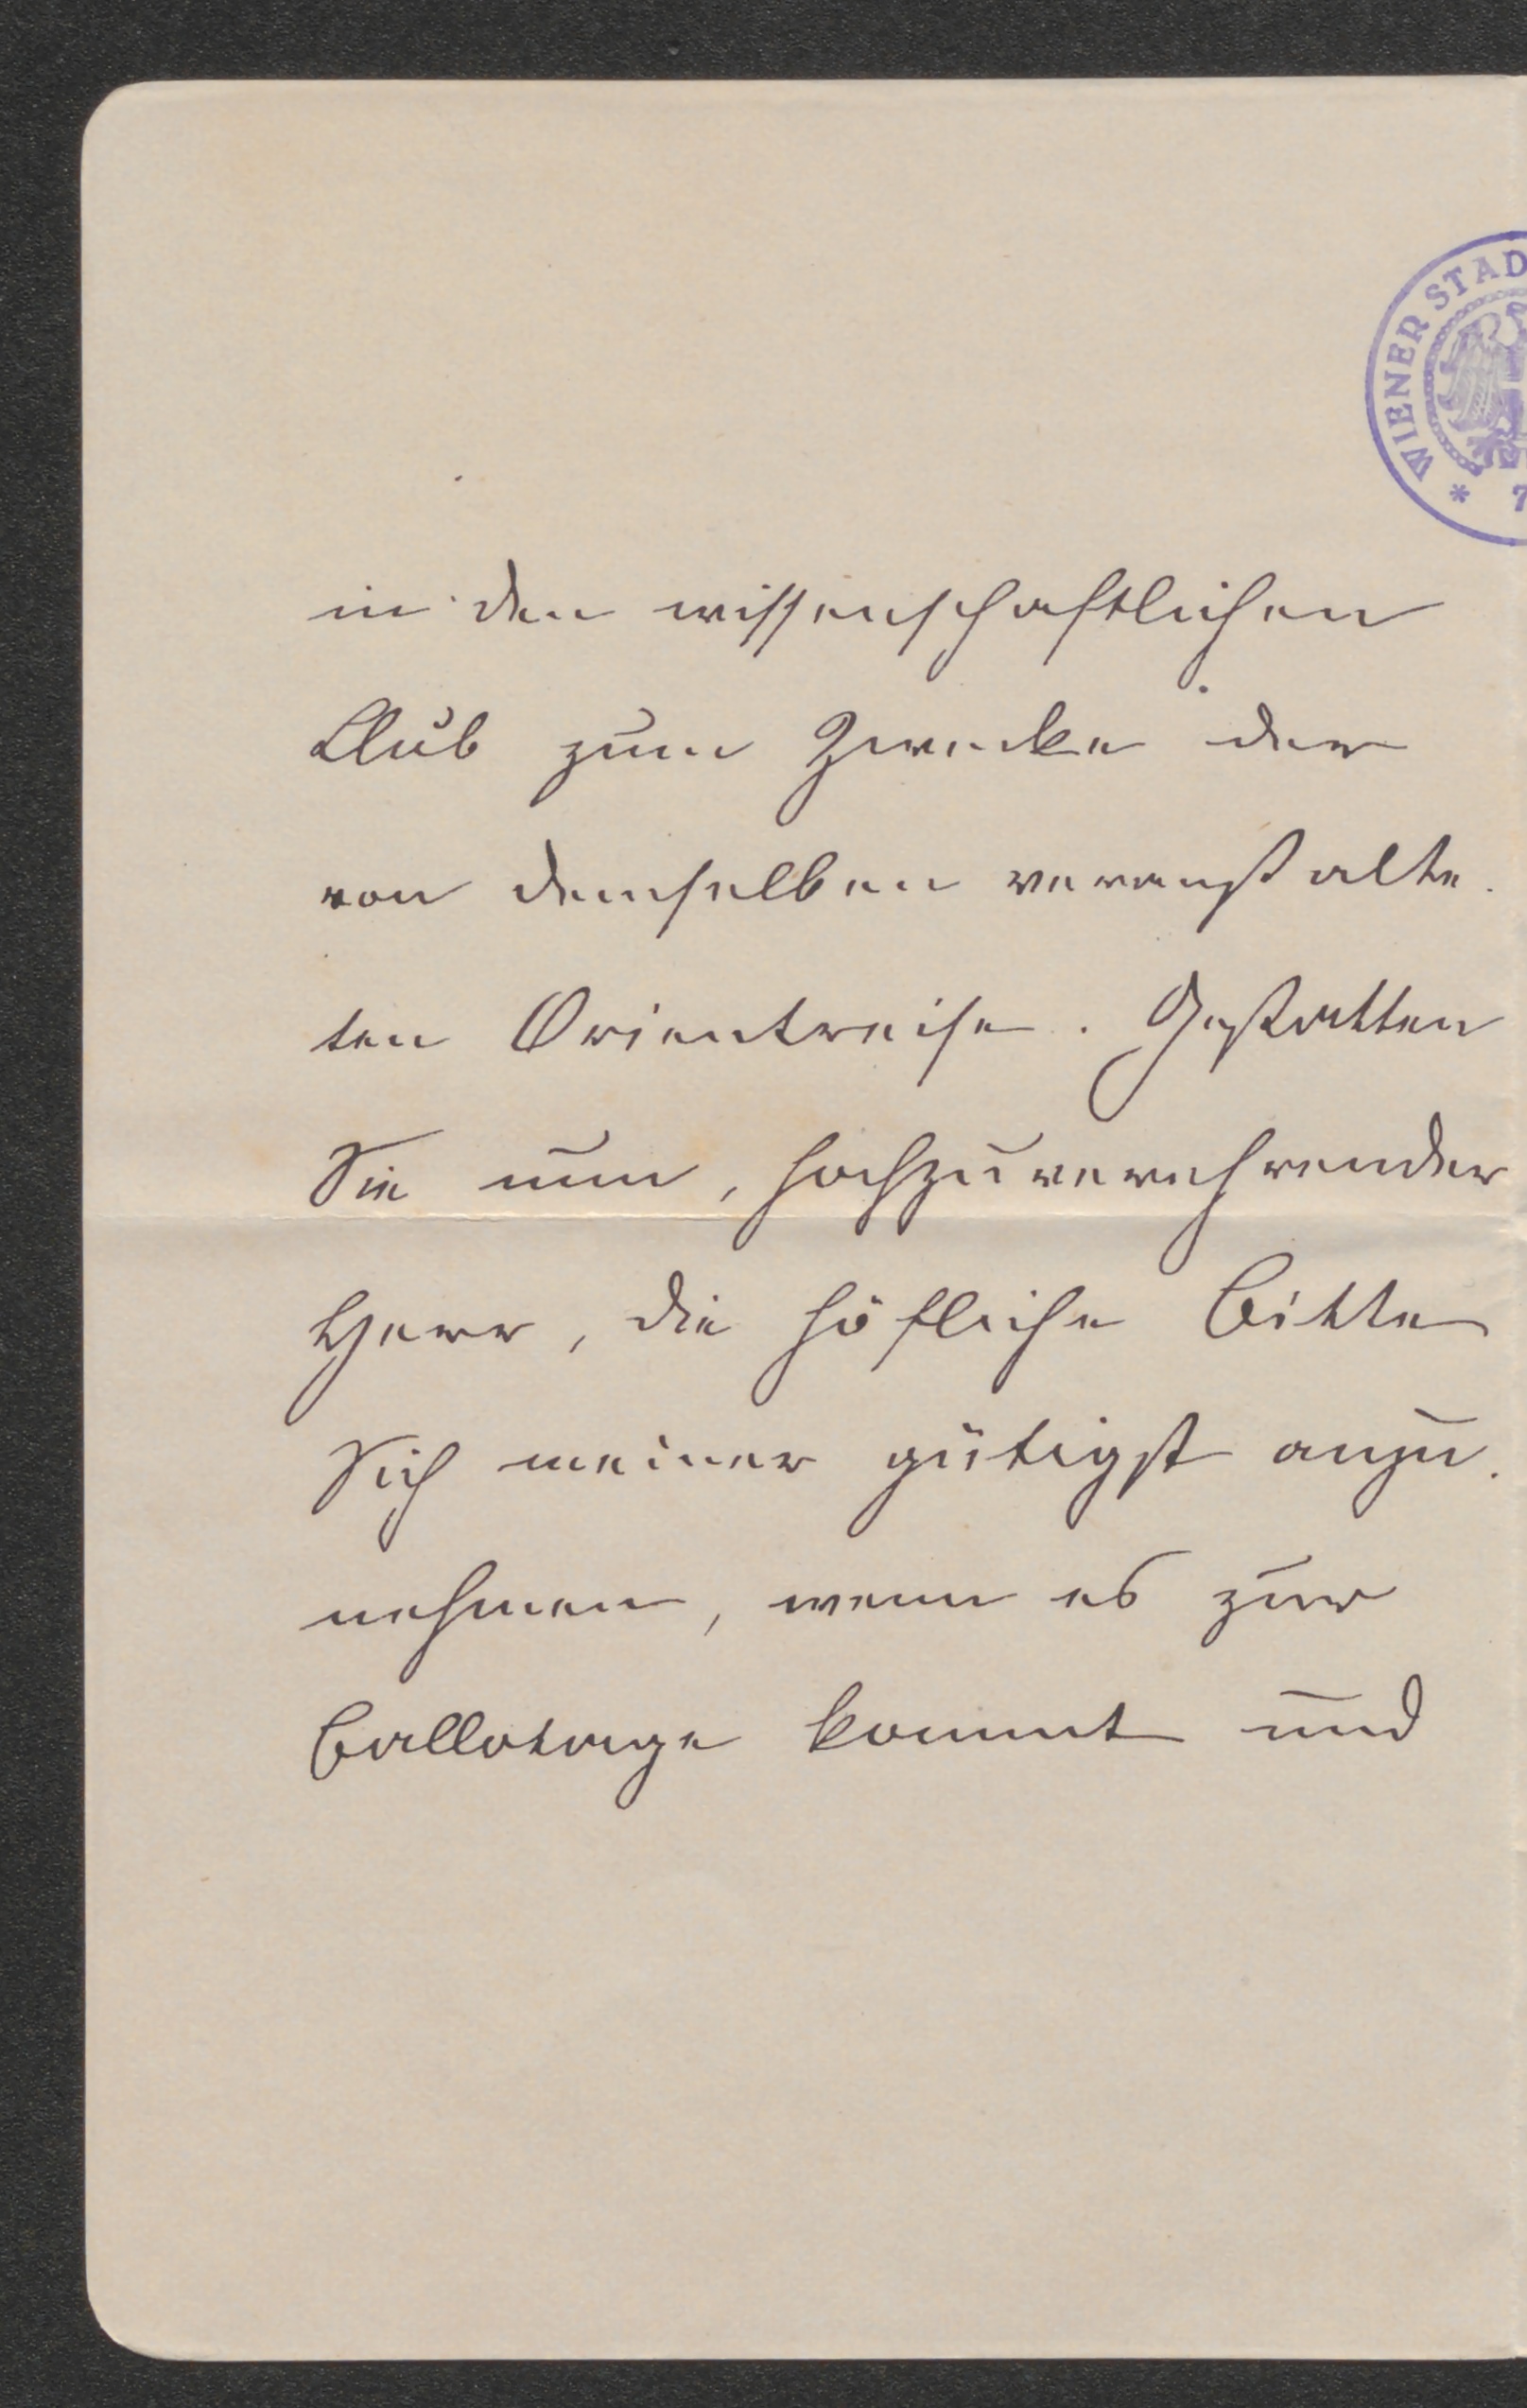 WIENER STAD
* 7
in den wissenschaftlichen
Club zum Zwecke der
von demselben veranstalte-
ten Orientreise. Gestatten
Sie nun, hochzuverehrender
Herr, die höfliche Bitte
Sich meiner gütigst anzu-
nehmen, wenn es zur
Ballotage kommt und